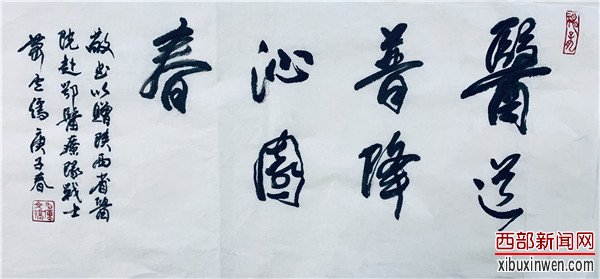 醫道
普降
沁園
春
敬书以贈陝西省醫
院赴鄂醫療隊戰士
蕭云儒庚子春
西部新闻网
xibuxinwen.com